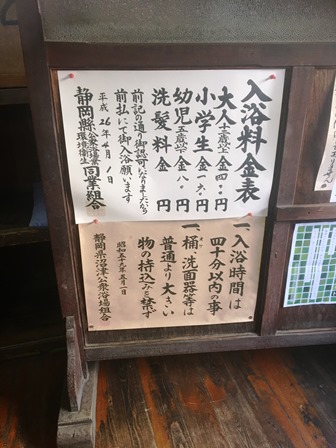 入浴料金表
大人 十二歳以上 金四〇〇円
小学生 金一六〇円
幼児 五歳以下 金八〇円
洗髪料 金 円
前記の通り御認可になりましたから
前払にて御入浴願います
平成26年4月1日
静岡縣公衆浴場業環境衛生同業組合
一、入浴時間は
四十分以内の事
一、桶、洗面器等は
普通より大きい
物の持込みを禁ず
昭和五十九年五月一日
静岡県沼津公衆浴場組合